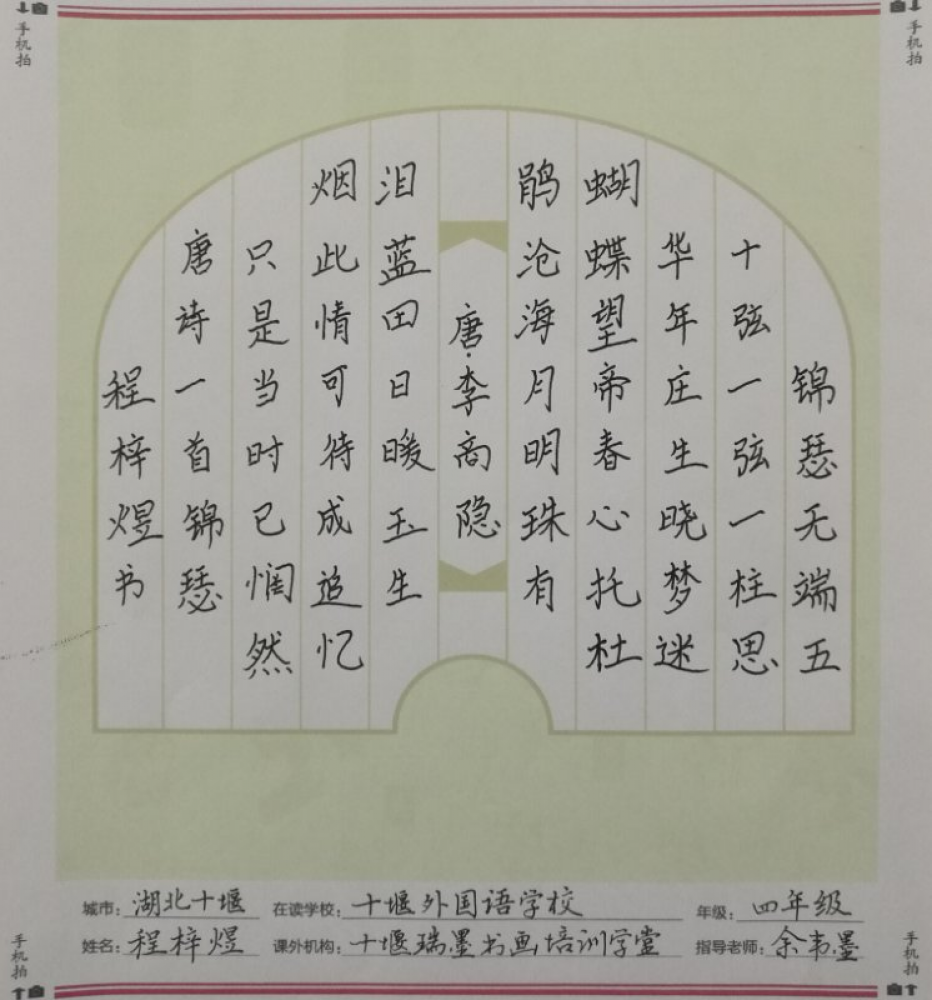 手机拍
手机拍
锦瑟无端五
十弦一弦一柱思
华年庄生晓梦迷
蝴蝶望帝春心托杜
鹃沧海月明珠有
唐·李商隐
泪蓝田日暖玉生
烟此情可待成追忆
只是当时已惘然
唐诗一首锦瑟
程梓煜书
城市：湖北十堰 在读学校：十堰外国语学校 年级：四年级
姓名：程梓煜 课外机构：十堰瑞墨书画培训学堂 指导老师：余韦墨
手机拍
手机拍